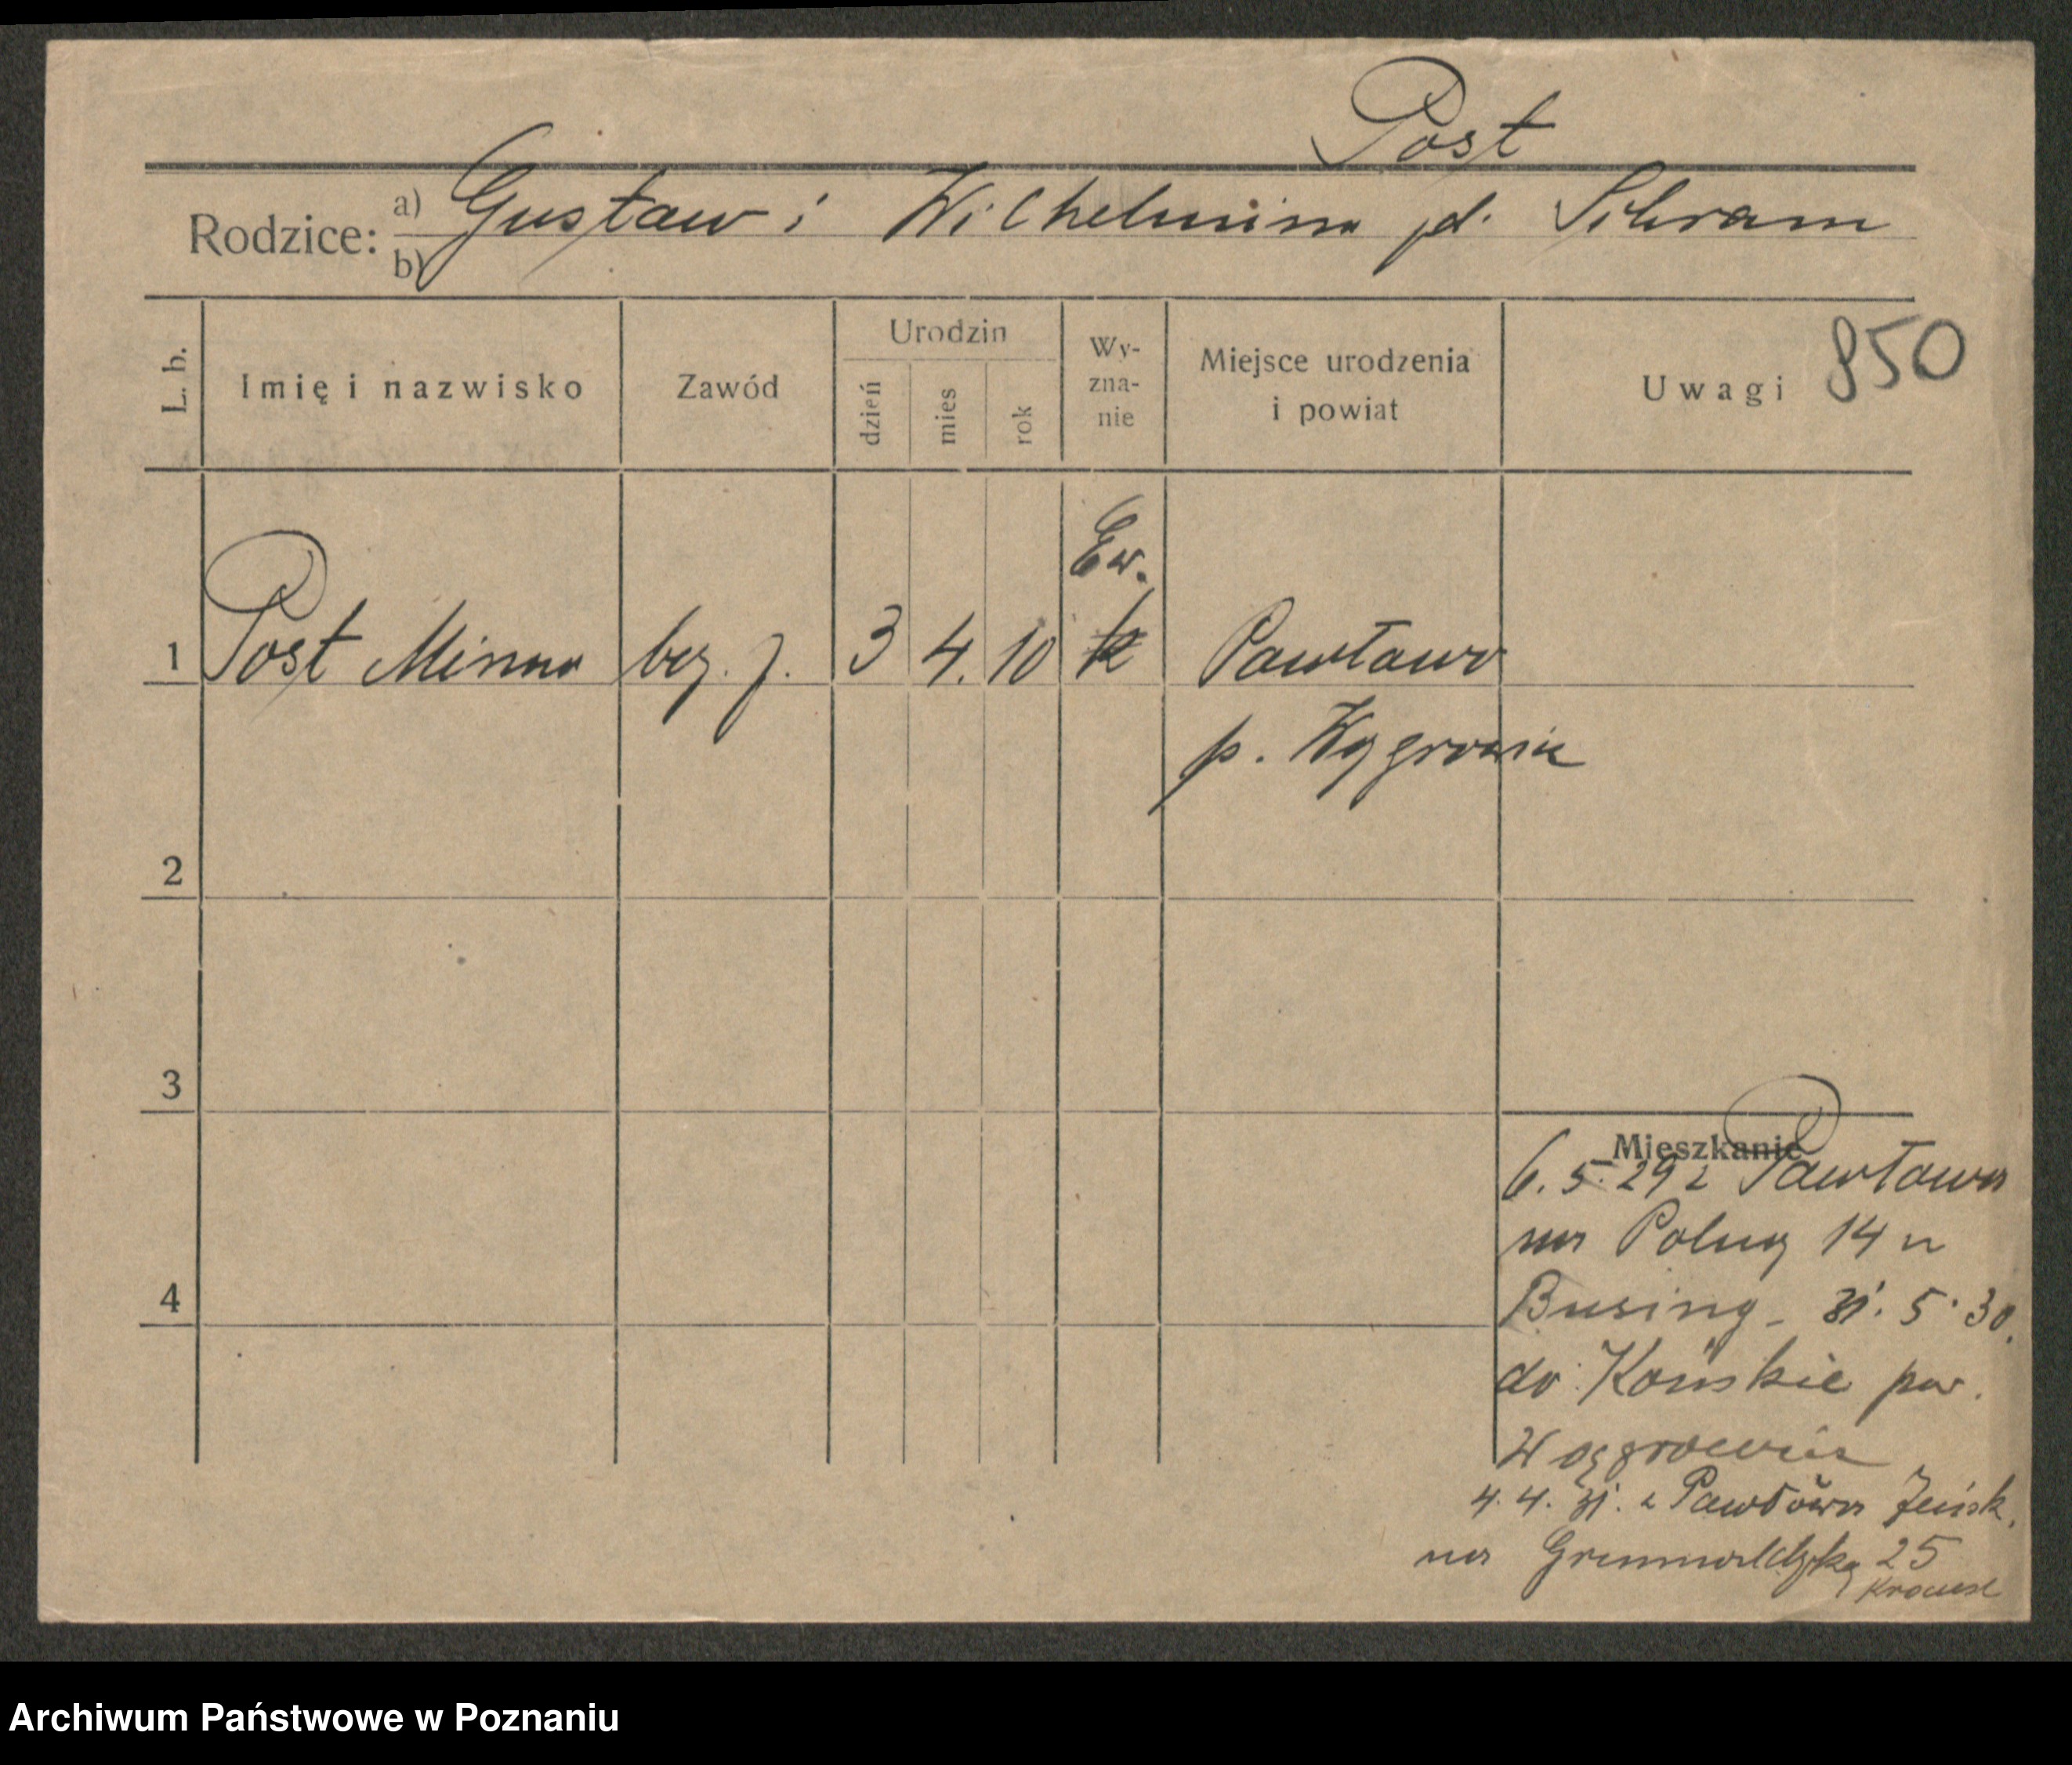 Post
Rodzice: a) Gustaw i Wilhelmina d. Schram
b)
L. b. Imię i nazwisko Zawód Urodzin dzień mies rok Wy-zna-nie Miejsce urodzenia i powiat Uwagi 850
Ew.
1 Post Minna bez. z. 3 4. 10 k Pawłowo
p. Wągrowiec
2
3
Mieszkanie
6. 5. 29 z Pawłowa
na Polną 14 u
4
Busing - 31. 5. 30.
do Końskie pow.
Wągrowiec
4. 4. 31. z Pawłowa Żeńsk.
na Grunwaldzką 25
Krause
Archiwum Państwowe w Poznaniu